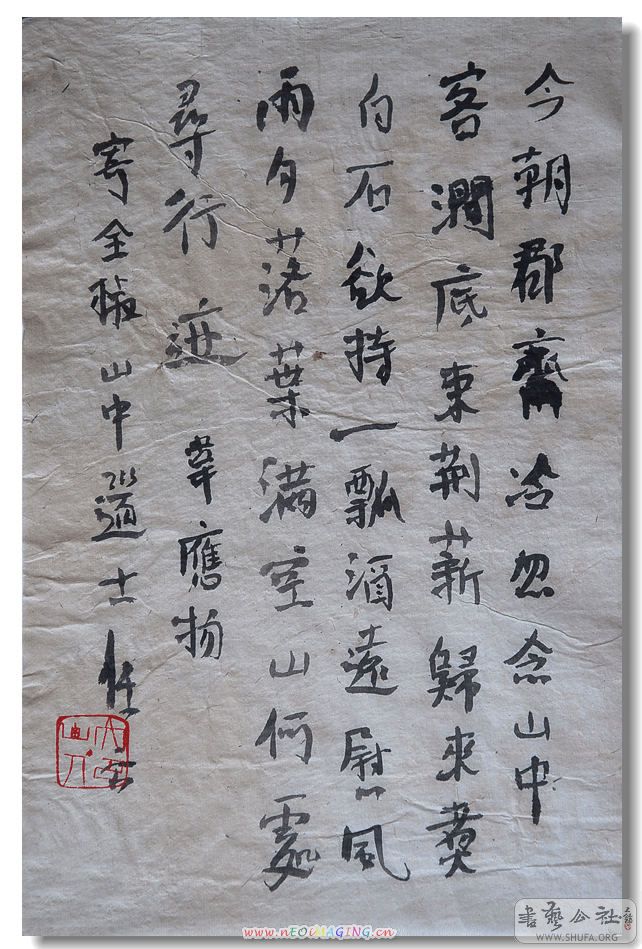 今朝郡齋冷忽念山中
客澗底束荆薪歸來煮
白石欲持一瓢酒遠慰風
雨夕落葉滿空山何處
尋行迹 韋應物
寄全椒山中道士
www.nEOiMAGiNG.cn
書藝公社
WWW.SHUFA.ORG